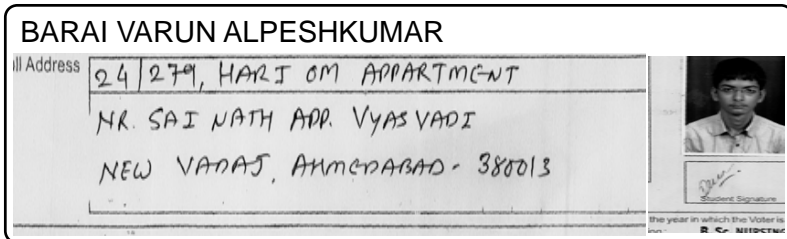 BARAI VARUN ALPESHKUMAR
ll Address
24/279, HARI OM APPARTMENT
NR. SAI NATH APP. VYASVADI
NEW VADAJ, AHMEDABAD- 380013
Student Signature
the year in which the Voter is
B. Sc. NURSING